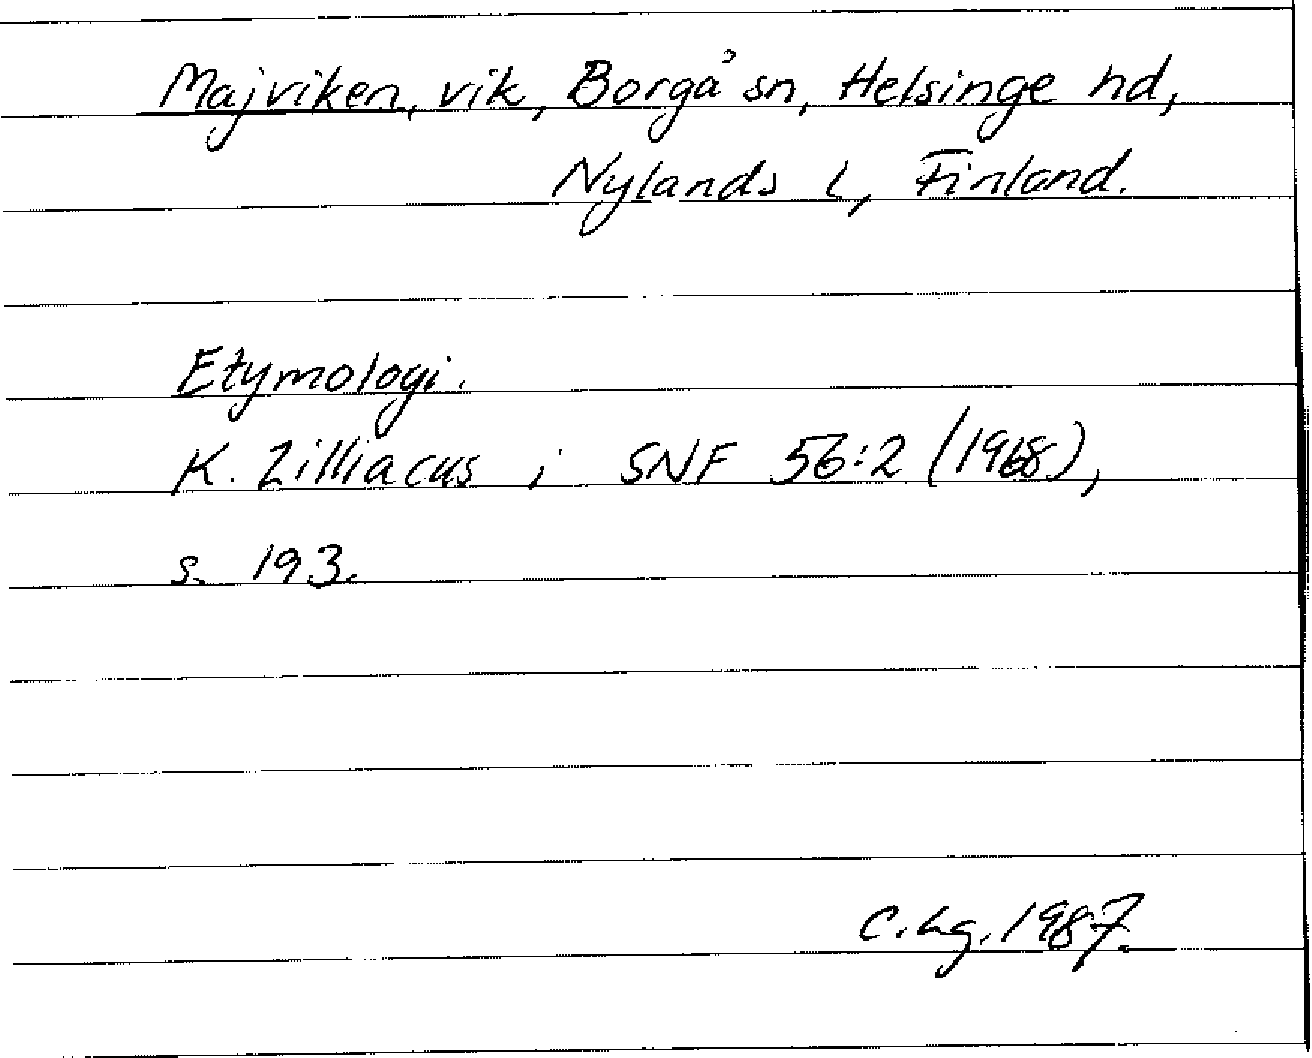 Majviken, vik, Borgå sn, Helsinge hd,
Nylands l, Finland.
Etymologi.
K. Zilliacus i SNF 56:2 (1968),
s. 193.
C. Lg. 1987.